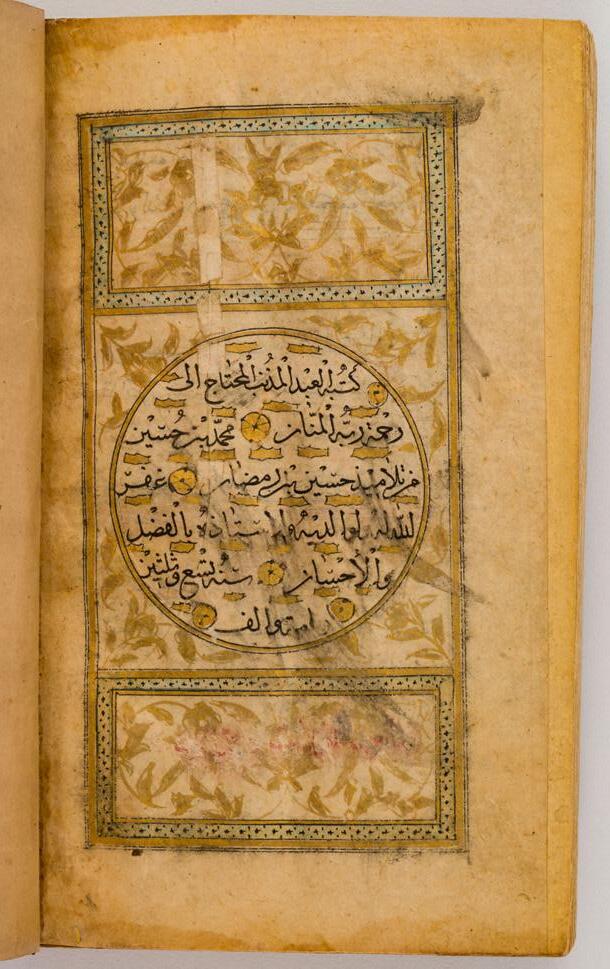 كَتَبَهُ الْعَبْدُ الْمُذْنِبُ الْمُحْتَاجُ إِلَى
رحمة ربّه المنّان محمّد بن حسين
من تلاميذ حسين بن رمضان غفر
الله له ولوالديه ولاستاذه بالفضل
والاحسان سنه تسع وثلثين
والف